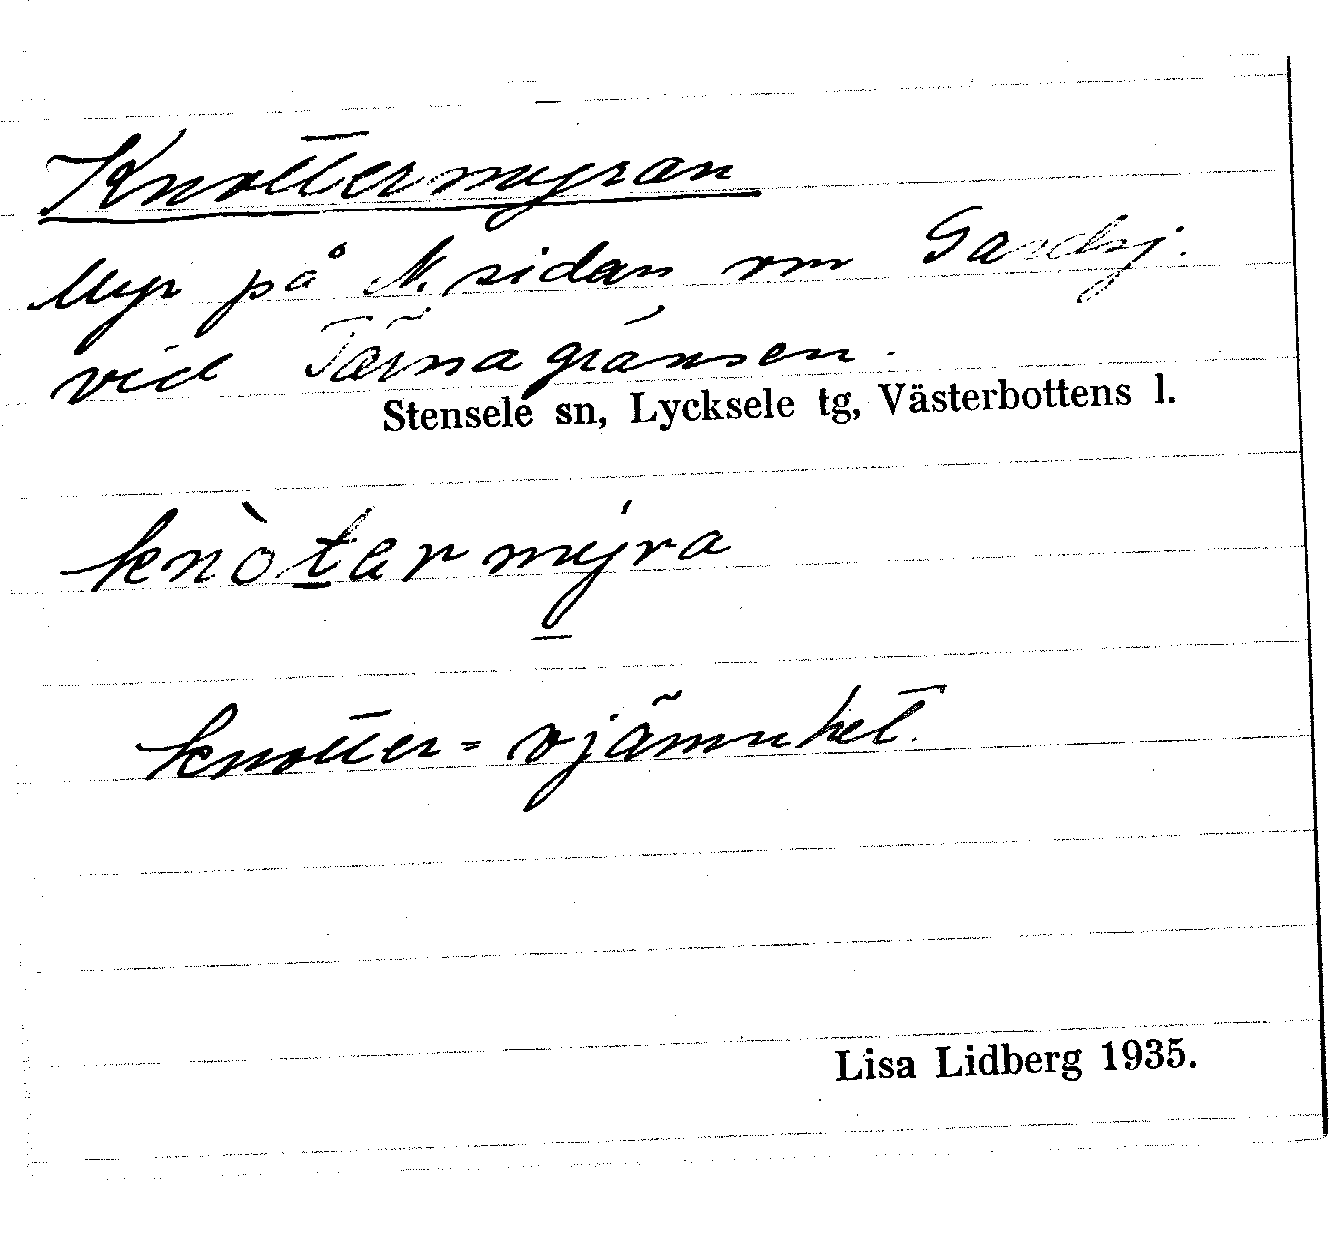 Knottermyran
Myr på N. sidan om Gardsj.
vid Tärnagränsen.
Stensele sn, Lycksele tg, Västerbottens l.
knòtermýra
knotter = ojämnhet.
Lisa Lidberg 1935.